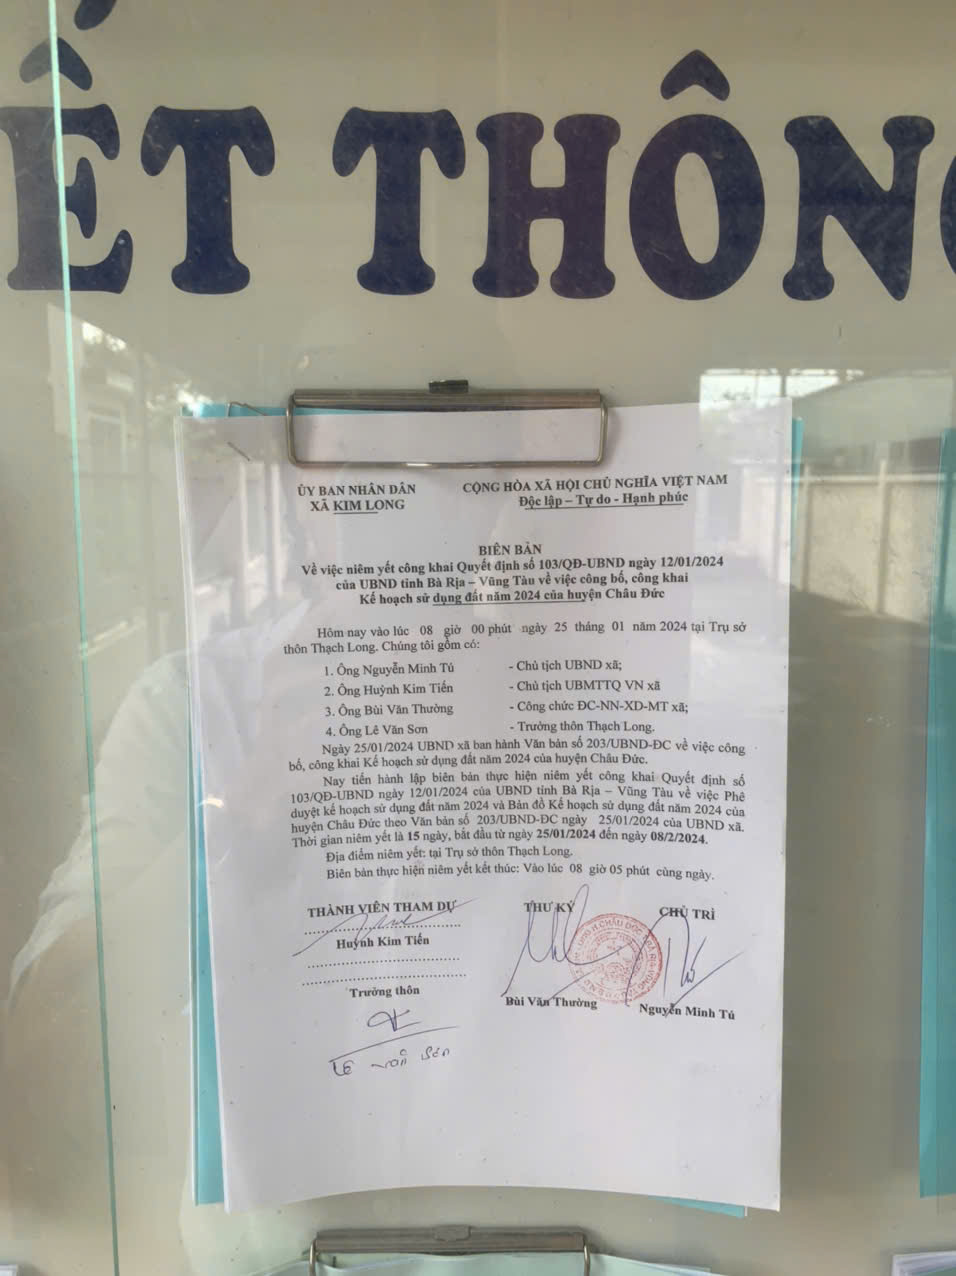 ẾT THÔNG
ỦY BAN NHÂN DÂN
XÃ KIM LONG
CỘNG HÒA XÃ HỘI CHỦ NGHĨA VIỆT NAM
Độc lập – Tự do - Hạnh phúc
BIÊN BẢN
Về việc niêm yết công khai Quyết định số 103/QĐ-UBND ngày 12/01/2024
của UBND tỉnh Bà Rịa – Vũng Tàu về việc công bố, công khai
Kế hoạch sử dụng đất năm 2024 của huyện Châu Đức
Hôm nay vào lúc 08 giờ 00 phút ngày 25 tháng 01 năm 2024 tại Trụ sở
thôn Thạch Long. Chúng tôi gồm có:
1. Ông Nguyễn Minh Tú - Chủ tịch UBND xã;
2. Ông Huỳnh Kim Tiến - Chủ tịch UBMTTQ VN xã
3. Ông Bùi Văn Thường - Công chức ĐC-NN-XD-MT xã;
4. Ông Lê Văn Sơn - Trưởng thôn Thạch Long.
Ngày 25/01/2024 UBND xã ban hành Văn bản số 203/UBND-ĐC về việc công
bố, công khai Kế hoạch sử dụng đất năm 2024 của huyện Châu Đức.
Nay tiến hành lập biên bản thực hiện niêm yết công khai Quyết định số
103/QĐ-UBND ngày 12/01/2024 của UBND tỉnh Bà Rịa – Vũng Tàu về việc Phê
duyệt kế hoạch sử dụng đất năm 2024 và Bản đồ Kế hoạch sử dụng đất năm 2024 của
huyện Châu Đức theo Văn bản số 203/UBND-ĐC ngày 25/01/2024 của UBND xã.
Thời gian niêm yết là 15 ngày, bắt đầu từ ngày 25/01/2024 đến ngày 08/2/2024.
Địa điểm niêm yết: tại Trụ sở thôn Thạch Long.
Biên bản thực hiện niêm yết kết thúc: Vào lúc 08 giờ 05 phút cùng ngày.
THÀNH VIÊN THAM DỰ
THƯ KÝ
CHỦ TRÌ
Huỳnh Kim Tiến
Trưởng thôn
Bùi Văn Thường
Nguyễn Minh Tú
Lê Văn Sơn